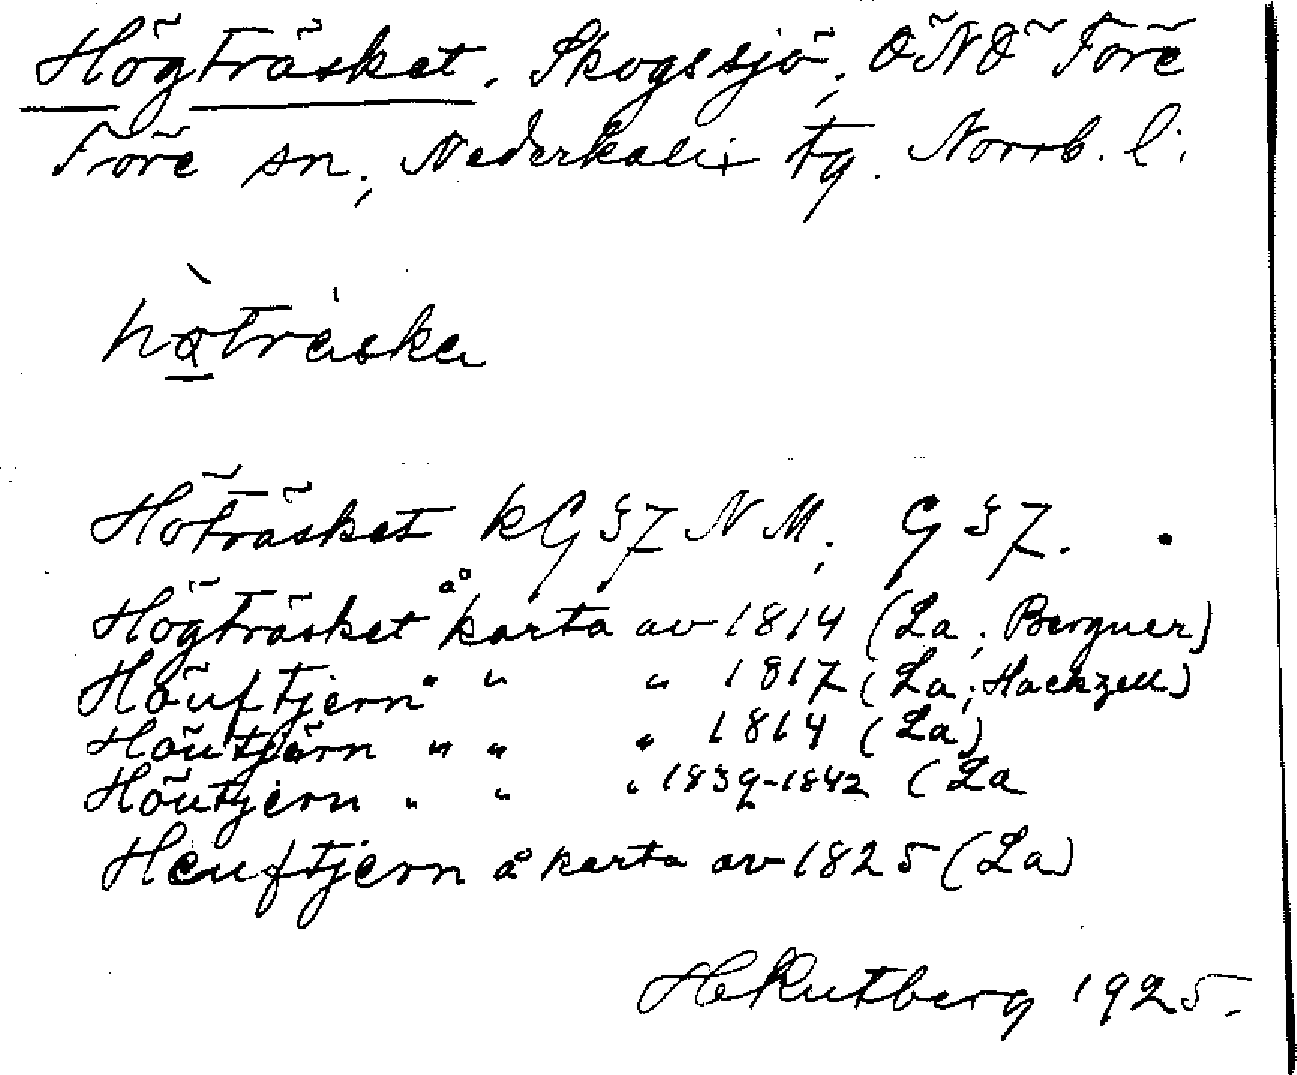 Högträsket. Skogssjö, ÖNÖ Töre
Töre sn, Nederkalix tg. Norrb. l.
hò̱tràska
Höträsket kG 57 NM, G 57.
Högträsket å karta av 1814 (La, Bergner)
Höuftjern " " " 1817 (La, Hackzell)
Höutjärn " " " 1814 (La)
Höutjern " " " 1839-1842 (La
Heuftjern å karta av 1825 (La)
H Rutberg 1925.